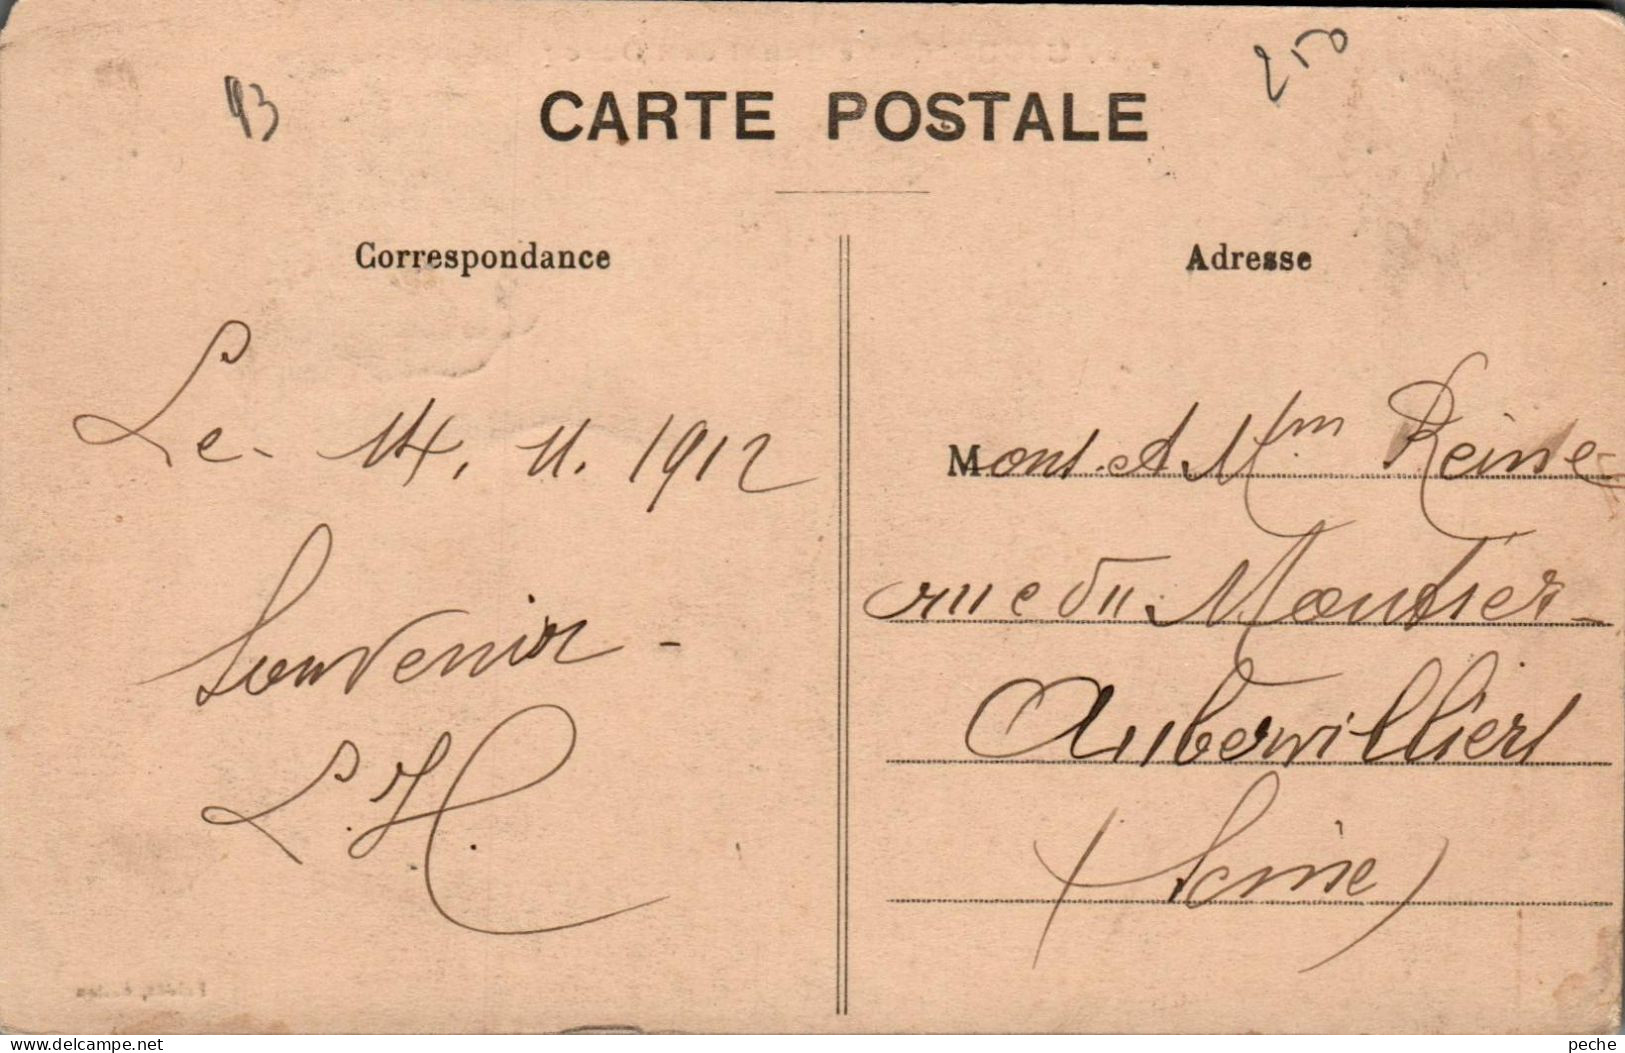 93
250
CARTE POSTALE
Correspondance
Le - 14. 11. 1912
Souvenir -
L. H.
Adresse
Mons. et Mme Reine
rue du Moutier -
Aubervilliers
(Seine)
delcampe.net
peche